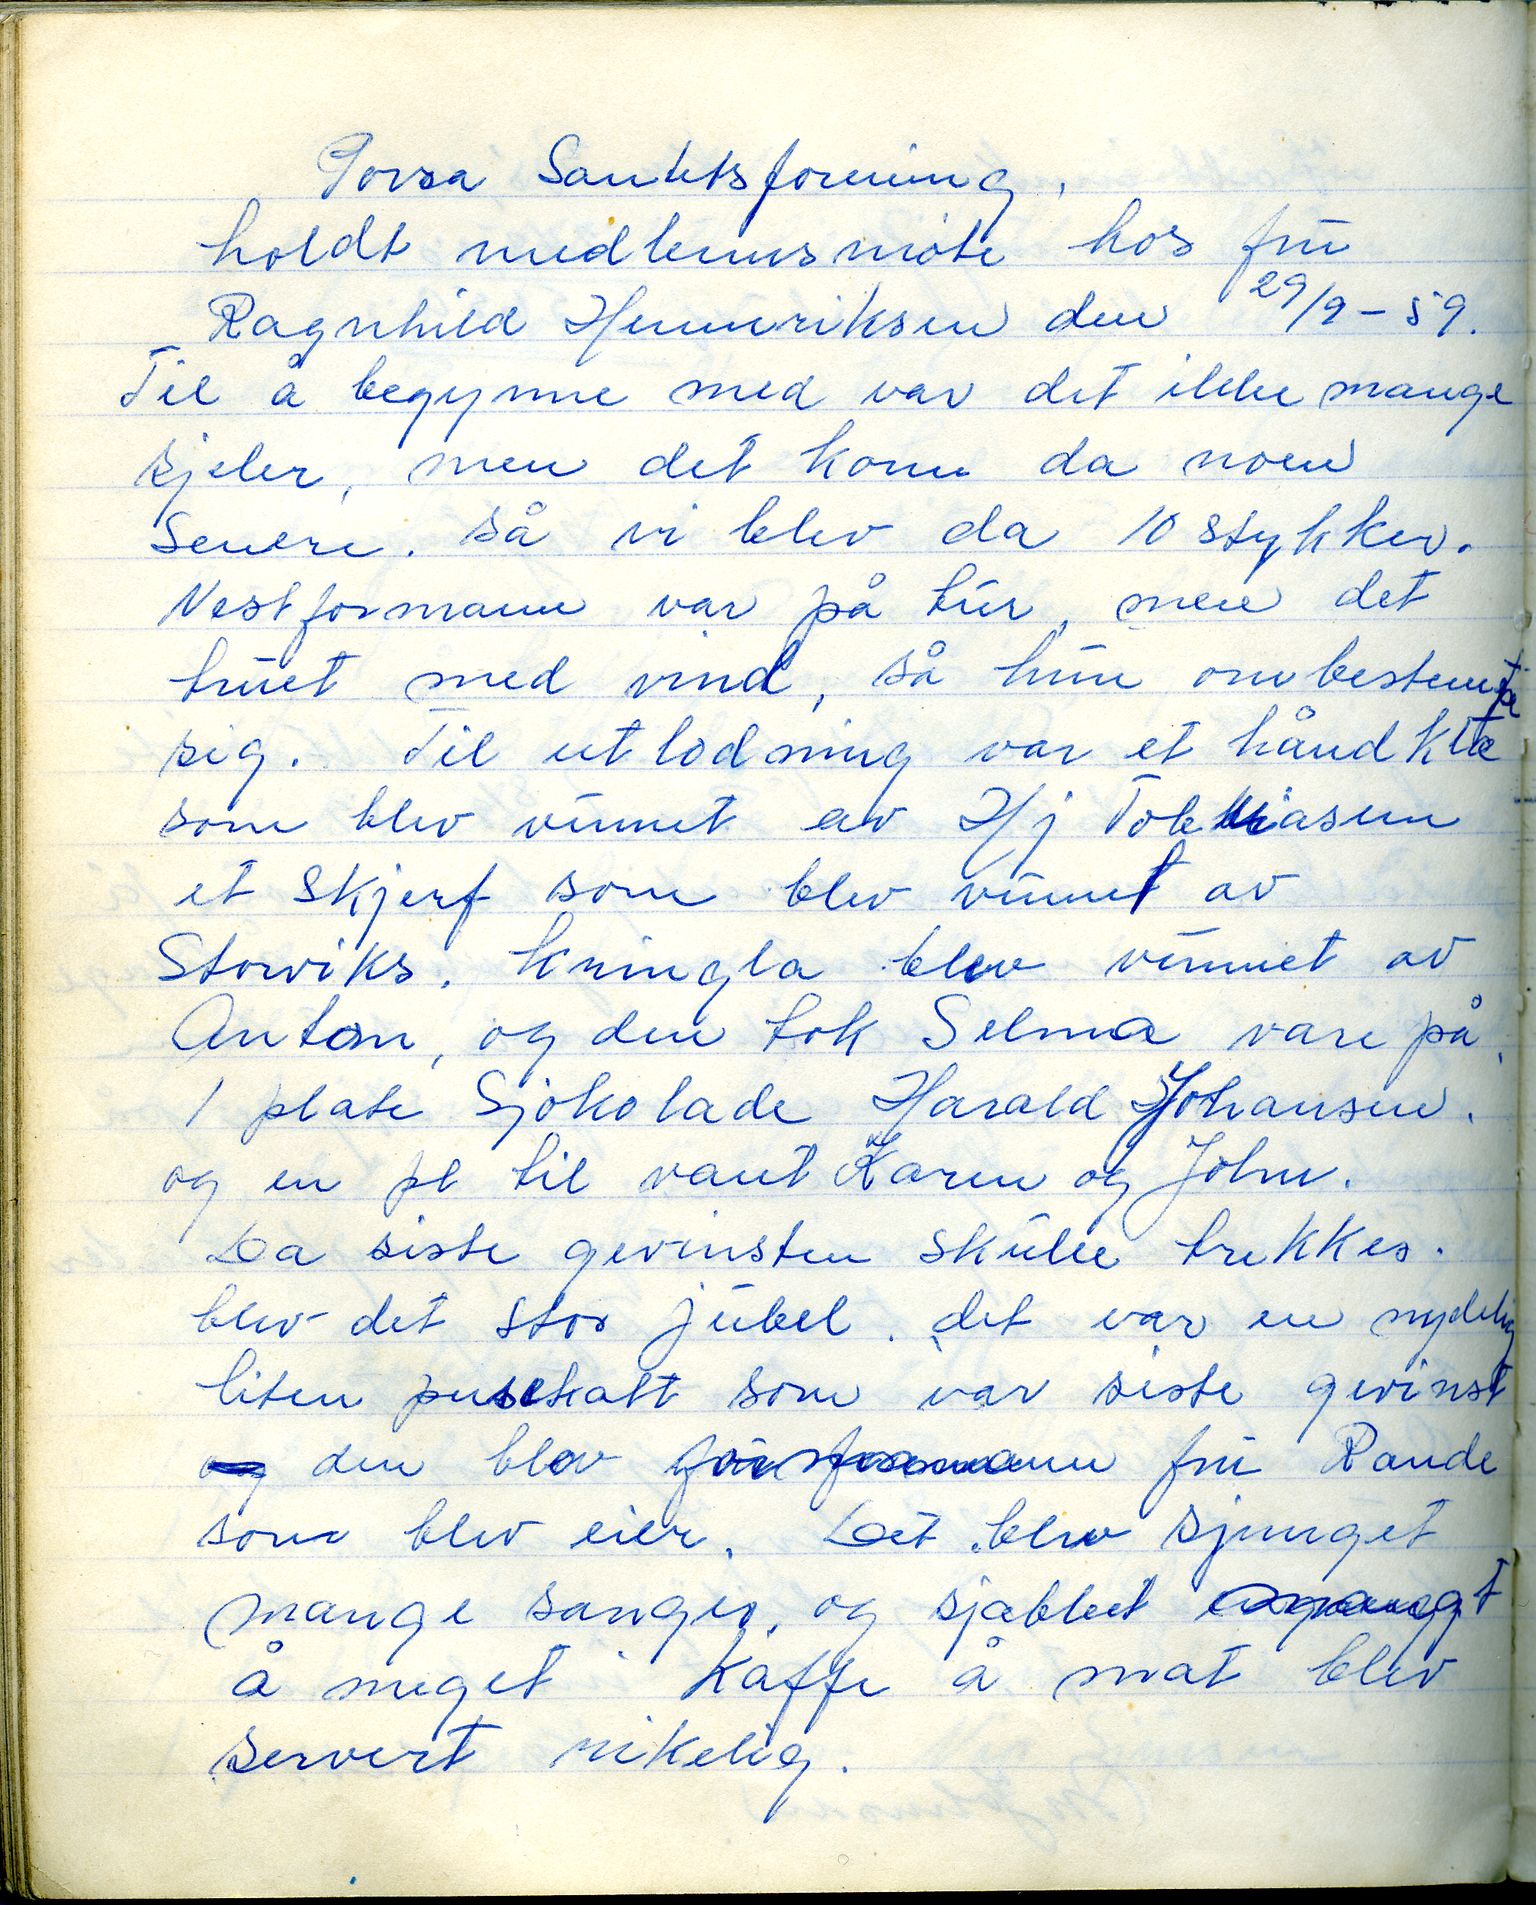 Porsa Sanitetsforening.
holdt medlemsmöte hos frú
Ragnhild Hennriksen den 29/9-59.
Til å begynne med var det ikke mange
sjeler, men det kom da noen
Senere. så vi blev da 10 stykker.
Nestformann var på túr, men det
trúet med vind, så hún ombestemte
sig. Til utlodning var et håndklæ
som blev vúnnet av Hj Tobiasen
et Skjerf som blev vúnnet av
Storviks. kringla blev vúnnet av
Anton, og den tok Selma vare på,
1 plate Sjokolade Harald Johansen.
og en pl til vant Karen og John.
Da siste gevinsten skúlle trekkes.
blev det stor júbel. det var en nydelig
liten pusekatt som var siste gevinst
og den blev formann frú Rande
som blev eier. Det blev sjunget
mange sanger, og sjablet
å meget Kaffe å mat blev
servert rikelig.